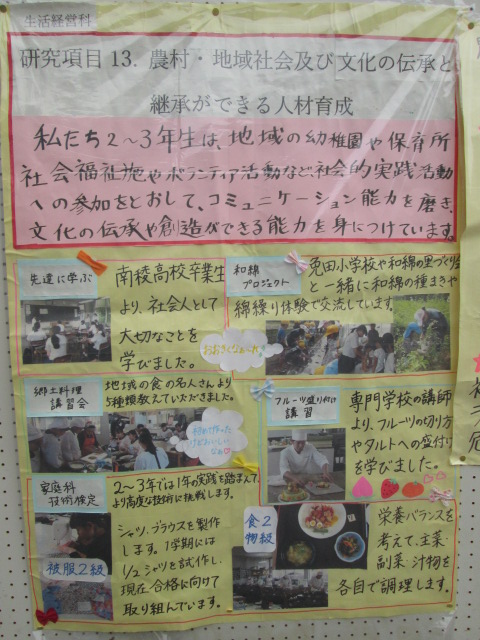 生活経営科
研究項目 13. 農村・地域社会及び文化の伝承と
継承ができる人材育成
私たち2～3年生は、地域の幼稚園や保育所
社会福祉施やボランティア活動など、社会的実践活動
への参加をとおして、コミュニケーション能力を磨き、
文化の伝承や創造ができる能力を身につけています。
先達に学ぶ
南稜高校卒業生
より、社会人として
大切なことを
学びました。
和綿
プロジェクト
免田小学校や和綿の里づくり会
と一緒に和綿の種まきや
綿繰り体験で交流しています。
おおきくなぁれ!
郷土料理
講習会
地域の食の名人さんより
5種類教えていただきました。
初めて作った
けどおいしい
なぁ
フルーツ盛り付け
講習
専門学校の講師
より、フルーツの切り方
やタルトへの盛付け
を学びました。
家庭科
技術検定
2～3年では1年の実践を踏まえて
より高度な技術に挑戦します。
シャツ、ブラウスを製作
します。1学期には
リュシャツを試作し、
現在合格に向けて
取り組んでいます。
被服2級
食2
物級
栄養バランスを
考えて、主菜、
副菜、汁物を
各自で調理します。